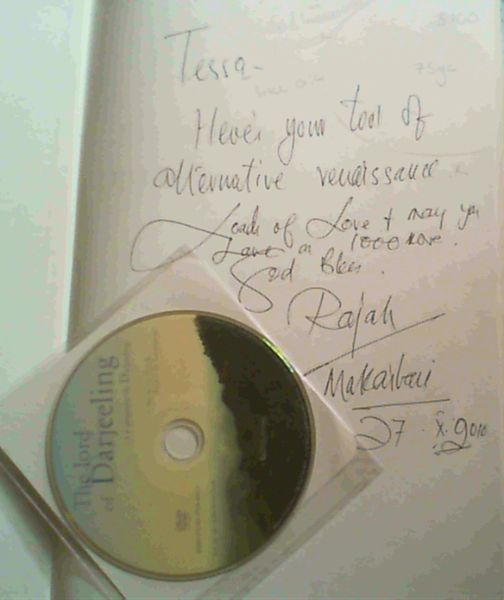 Tessa-
Here's your tool of
alternative renaissance
Loads of Love & may you
Love on 1000 more.
God Bless.
Rajah
Makaibari
27 . X. 2010
The lord
of Darjeeling